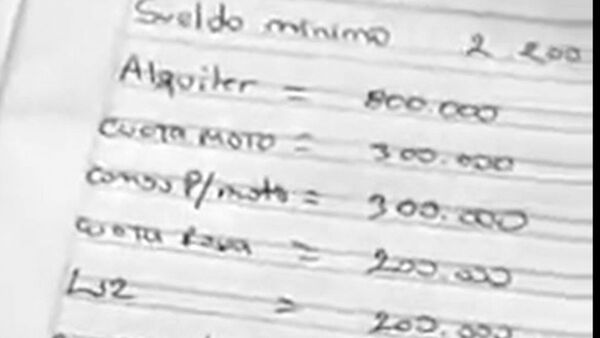 Sueldo minimo 2 200
Alquiler = 800.000
cuota moto = 300.000
P/moto = 300.000
cuota = 200.000
Luz = 200.000